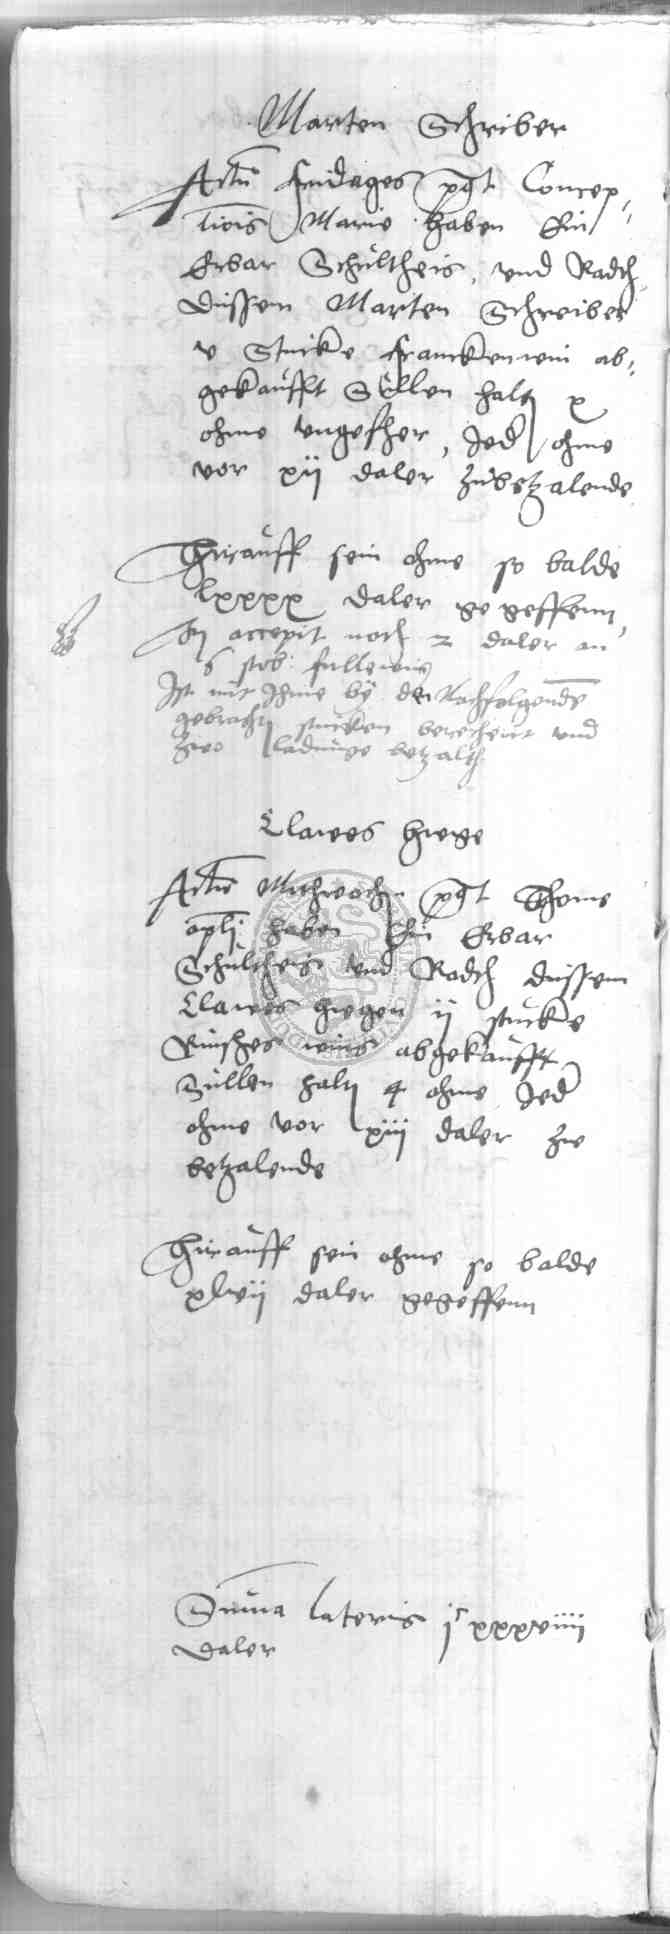 Marten Schriber
Actu Fridages post Concep-
tiois Marie haben Ein
Erbar Schultheis, vnd Radth
dussem Marten Schreiber
v Stucke Franckenwin ab-
gekaufft Sullen halt x
ohme vngefher, Jed ohme
vor xij daler zubetzalende
Hirauff sein ohme so balde
lxxxx daler gegeffenn,
accepit noch 2 daler an
6 stob fullewins
Ist mit Ihme by den Nachfolgende
gebracht stucken berechent vnd
zwo ladunge betzalth
Clawes Hwge
Actu Mithwoche post Thome
apli haben Ein Erbar
Schultheis vnd Radth dussem
Clawes Hwgen ij stucke
Rinsches wins abgekaufft
Sullen halt 4 ohme Jed
ohme vor xiij daler zw
betzalende
Hirauff sein ohme so balde
xlvij daler gegeffenn
Suma lateris jc xxxviiij
daler